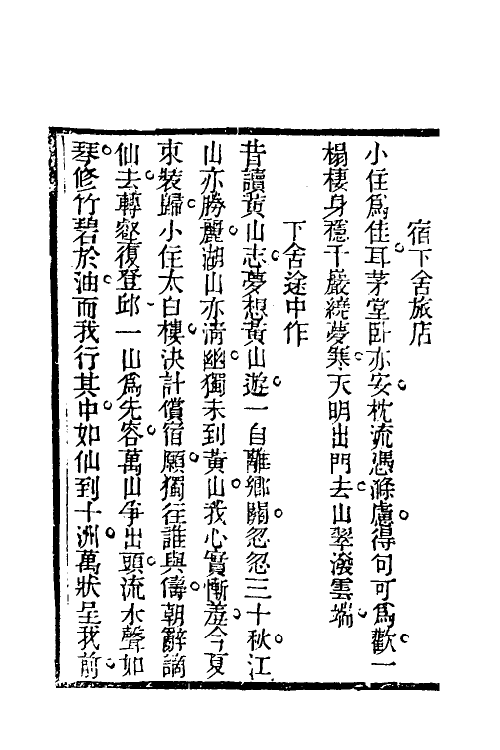 宿下舍旅店
小住爲佳耳茅堂卧亦安枕流憑滌慮得句可爲歡一
榻棲身穩千巖繞夢寒天明出門去山翠潑雲端
下舍途中作
昔讀黃山志夢想黃山遊一自離鄉關忽忽三十秋江
山亦勝麗湖山亦清幽獨未到黃山我心實慚羞今夏
束裝歸小住太白樓決計償宿願獨往誰與儔朝辭謫
仙去轉壑復登邱一山爲先容萬山爭出頭流水聲如
琴修竹碧於油而我行其中如仙到十洲萬狀呈我前